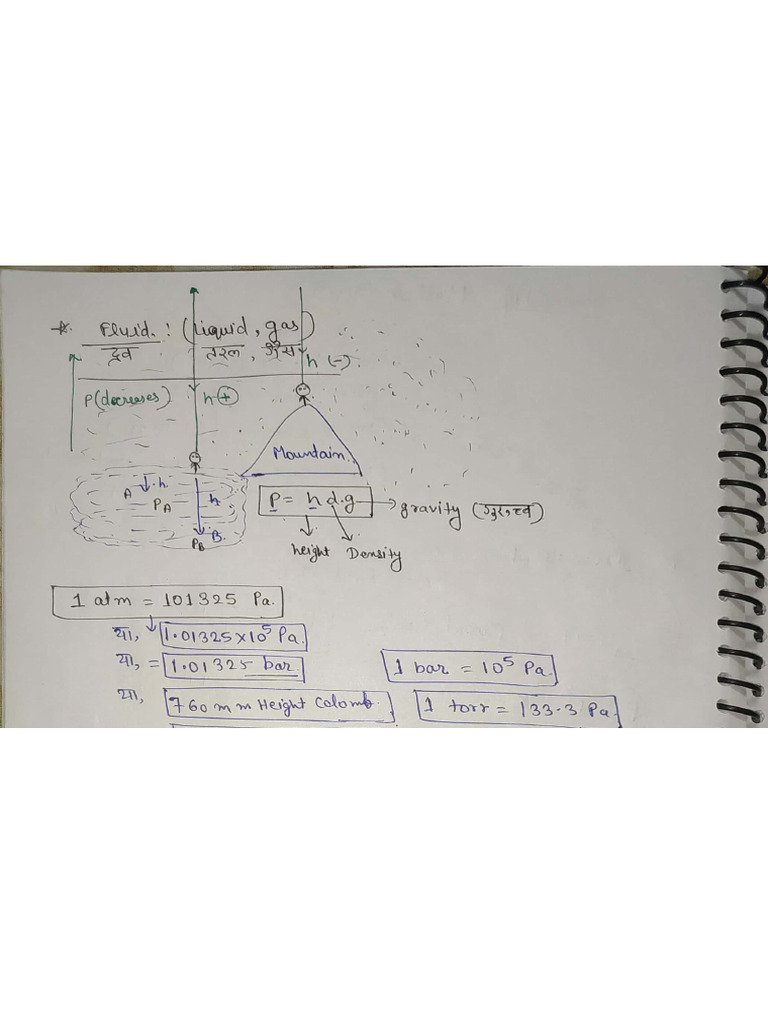 * Fluid : (Liquid, gas)
द्रव तरल, गैस
h (-)
P(decreases) h +
Mountain.
A h.
PA h
B.
PB
P = h d.g → gravity (गुरुत्व)
height Density
1 atm = 101325 Pa.
या, 1.01325×10⁵ Pa.
या, = 1.01325 bar. 1 bar = 10⁵ Pa.
या, 760 mm Height Colomb. 1 torr = 133.3 Pa.